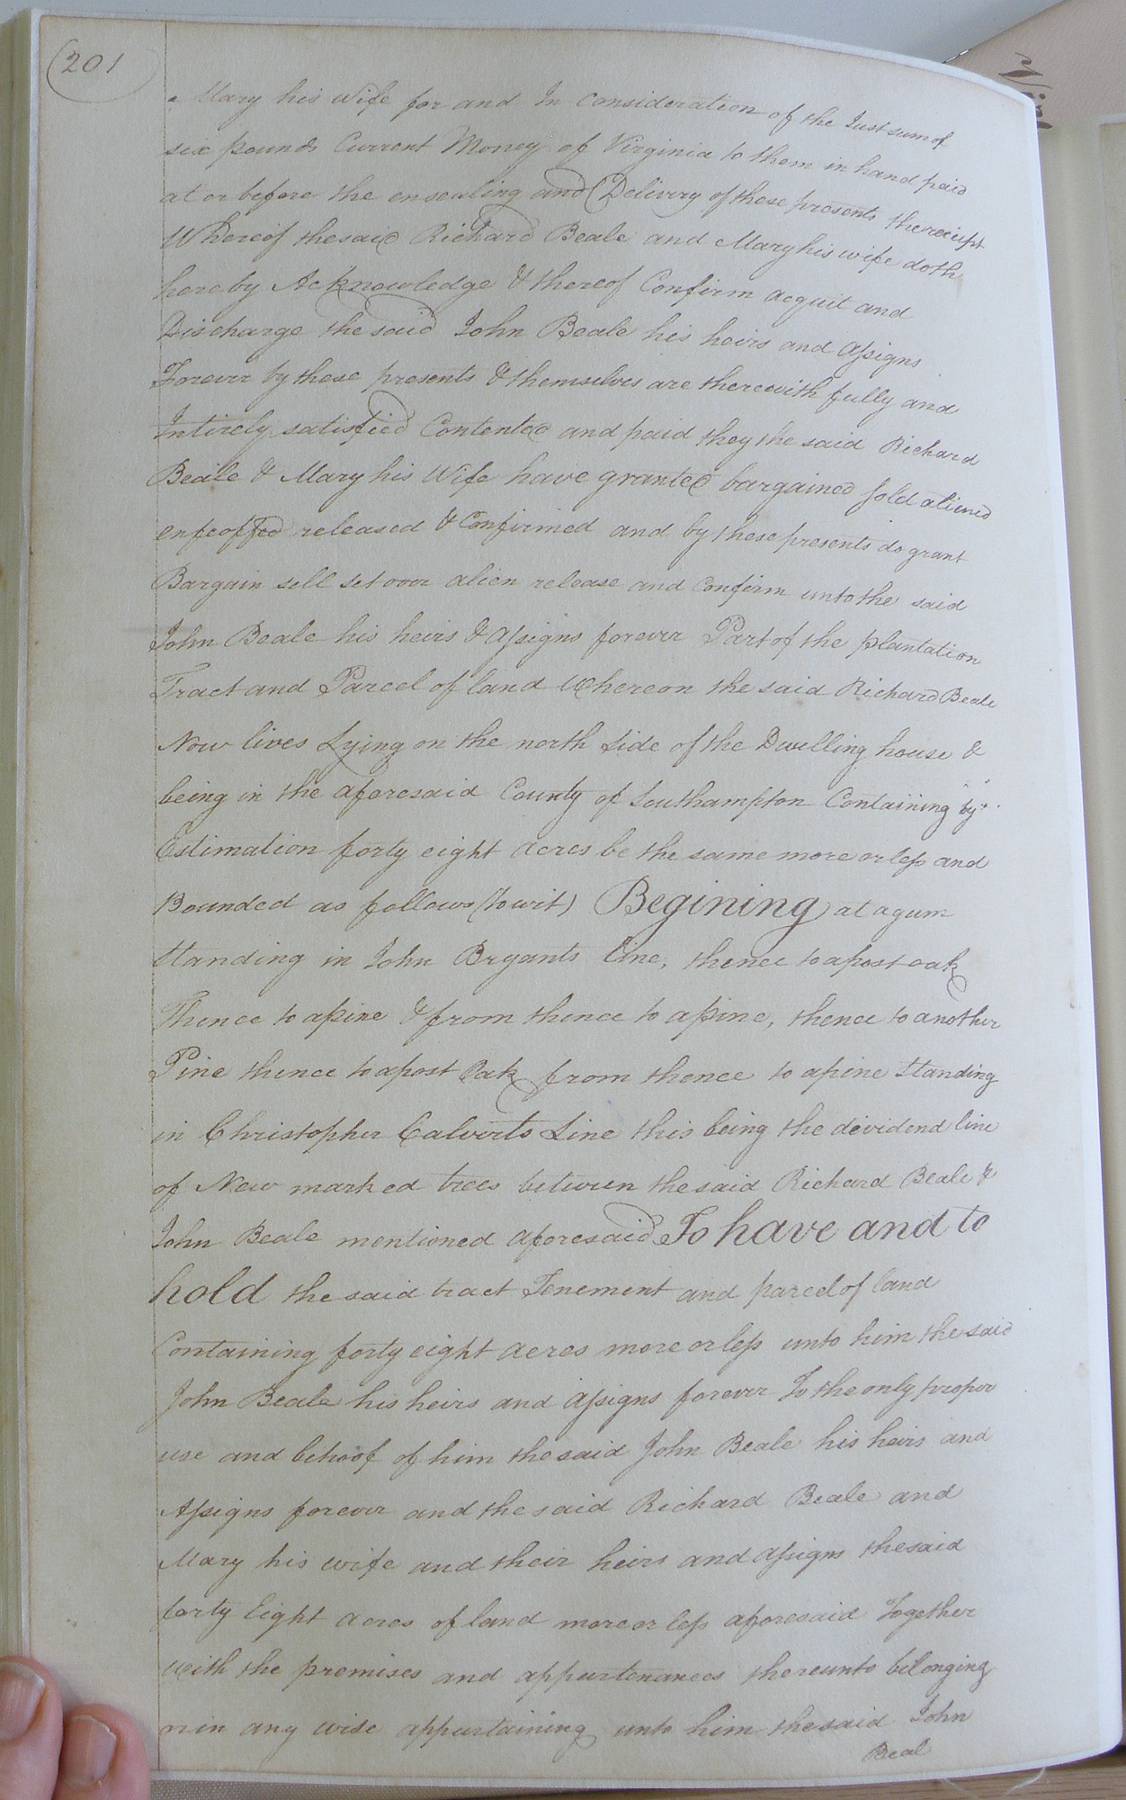 201
Mary his Wife for and In Consideration of the Just sum of
six pounds Current Money of Virginia to them in hand paid
at or before the ensealing and Delivery of these presents the reciept
Whereof the said Richard Beale and Mary his wife doth
hereby Acknowledge & thereof Confirm acquit and
Discharge the said John Beale his heirs and Assigns
Forever by these presents & themselves are therewith fully and
Intirely satisfied Contented and paid they the said Richard
Beale & Mary his Wife have granted bargained sold aliened
enfeoffed released & Confirmed and by these presents do grant
Bargain sell set over alien release and Confirm unto the said
John Beale his heirs & Assigns forever Part of the plantation
Tract and Parcel of land Whereon the said Richard Beale
Now lives Lying on the north Side of the Dwelling house &
being in the aforesaid County of Southampton Containing by
Estimation forty eight acres be the same more or less and
Bounded as follows (to wit) Begining at a gum
Standing in John Bryants line, thence to a post oak
Thence to a pine & from thence to a pine, thence to another
Pine thence to a post Oak from thence to a pine Standing
in Christopher Calverts Line this being the devidend line
of New marked trees between the said Richard Beale &
John Beale mentioned aforesaid To have and to
hold the said tract Tenement and parcel of land
Containing forty eight acres more or less unto him the said
John Beale his heirs and Assigns forever To the only proper
use and behoof of him the said John Beale his heirs and
Assigns forever and the said Richard Beale and
Mary his wife and their heirs and assigns the said
forty Eight acres of land more or less aforesaid Together
With the premises and appurtenances thereunto belonging
or in any wise appurtaining unto him the said John
Beal